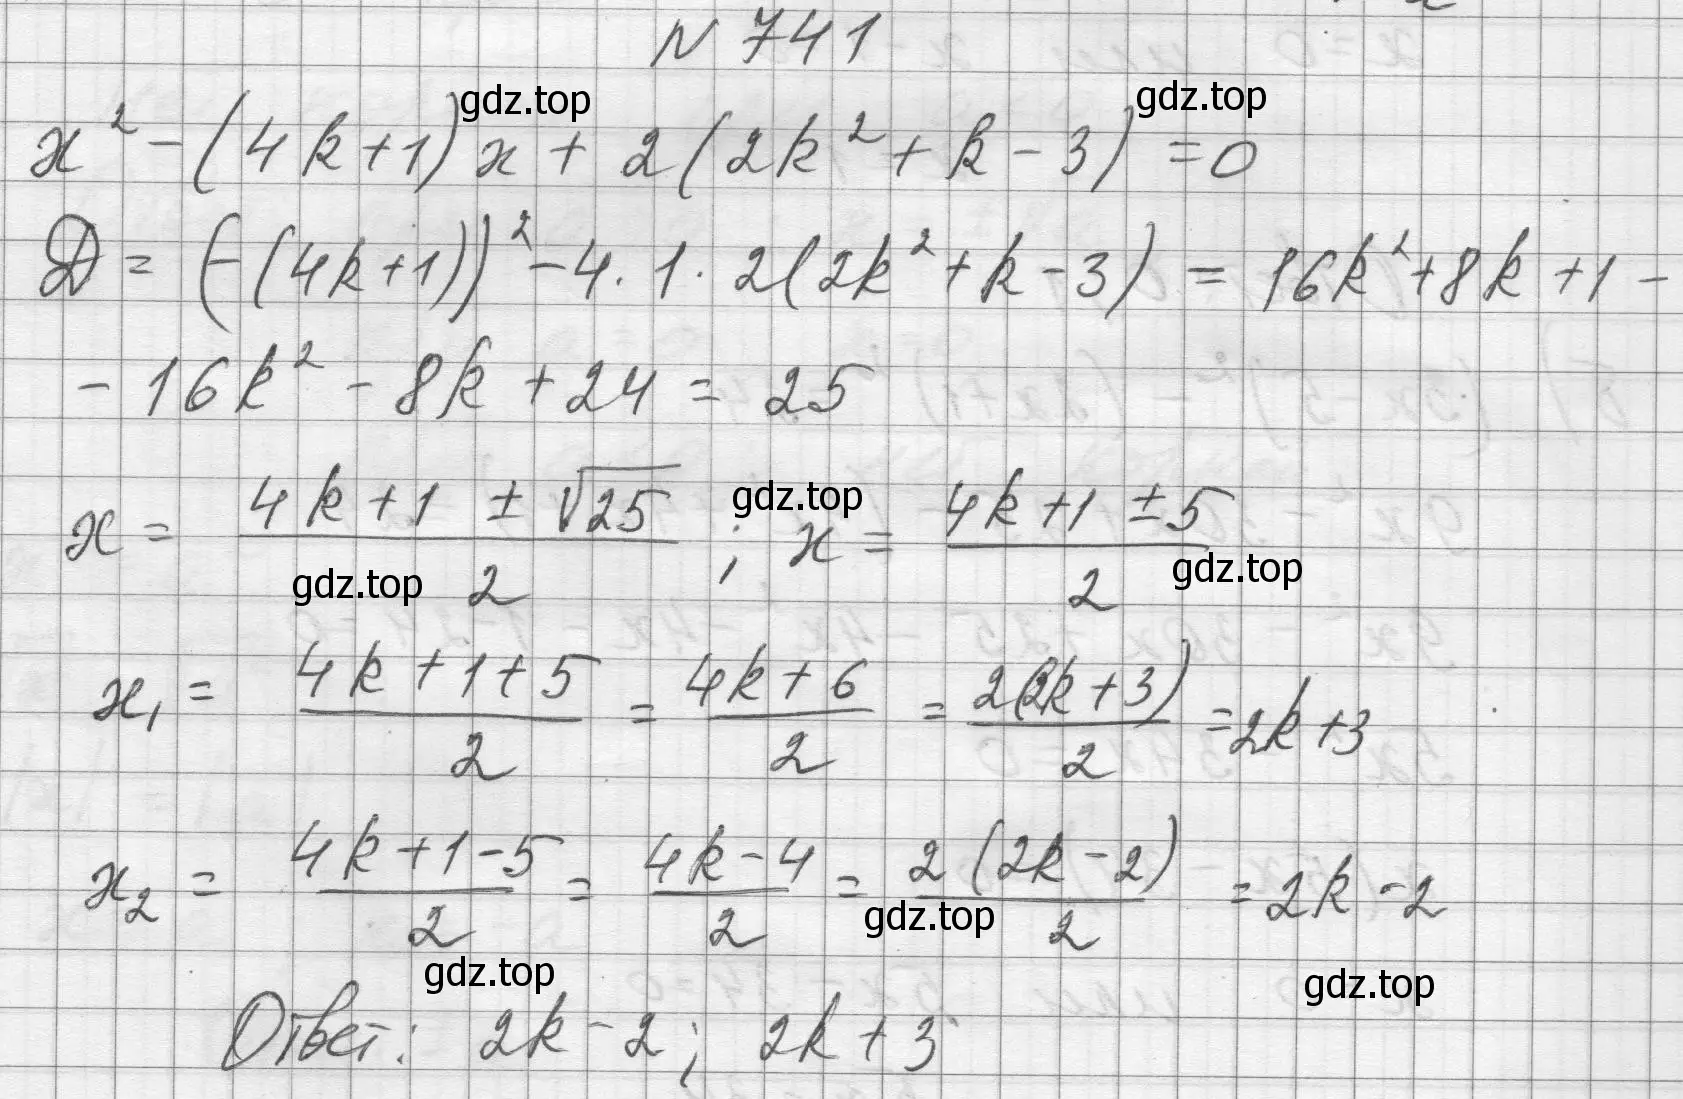 N 741
gdz.top
gdz.top
x² - (4k+1)x + 2(2k² + k - 3) = 0
D = (-(4k+1))² - 4 · 1 · 2(2k² + k - 3) = 16k² + 8k + 1 -
- 16k² - 8k + 24 = 25
x = (4k+1 ± √25)/2 ; x = (4k+1 ± 5)/2
gdz.top
gdz.top
gdz.top
x₁ = (4k+1+5)/2 = (4k+6)/2 = 2(2k+3)/2 = 2k+3
x₂ = (4k+1-5)/2 = (4k-4)/2 = 2(2k-2)/2 = 2k-2
gdz.top
gdz.top
gdz.top
Ответ: 2k-2; 2k+3